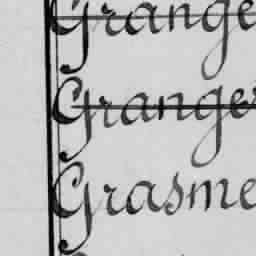 Grange
Granger
Grasme